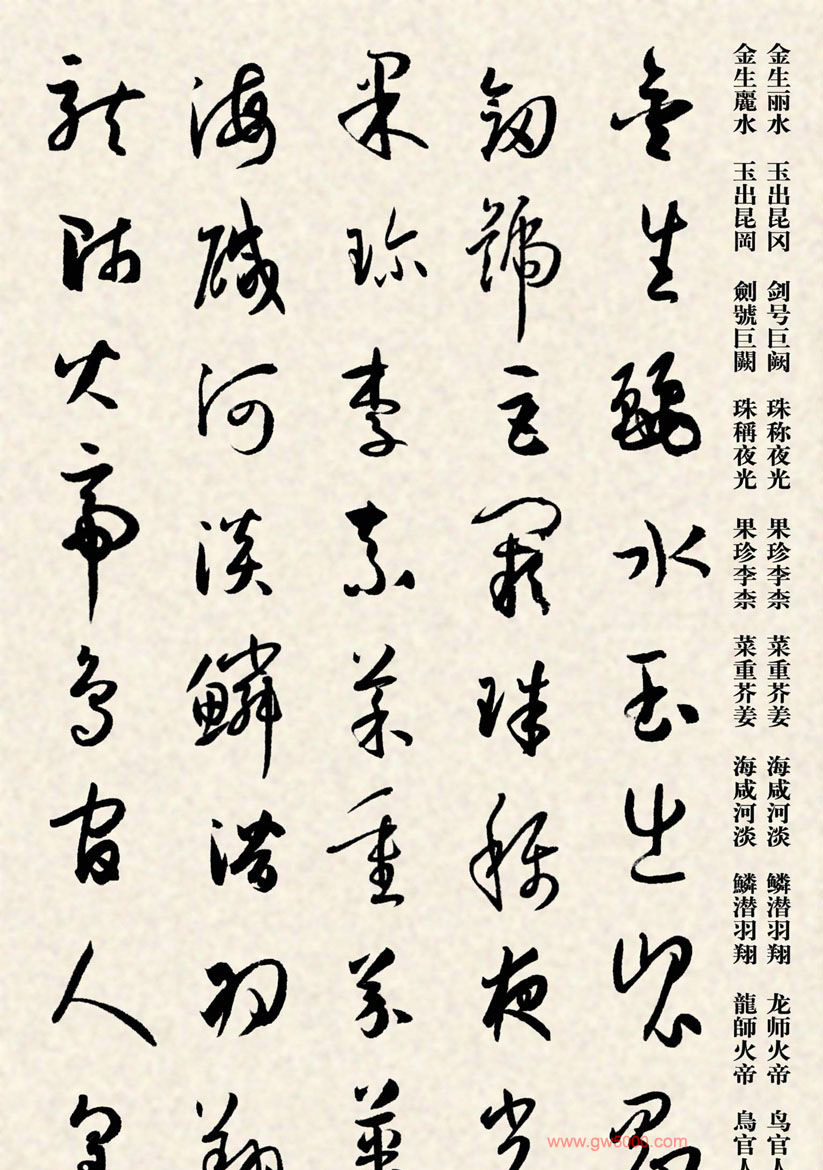 金生丽水 玉出昆冈 剑号巨阙 珠称夜光 果珍李柰 菜重芥姜 海咸河淡 鳞潜羽翔 龙师火帝 鸟官人
金生麗水 玉出昆岡 劍號巨闕 珠稱夜光 果珍李柰 菜重芥姜 海咸河淡 鱗潜羽翔 龍師火帝 鳥官人
金生麗水玉出崑岡
劍號巨闕珠稱夜光
果珍李柰菜重芥薑
海醎河淡鱗潛羽翔
龍師火帝鳥官人皇
www.gw5000.com